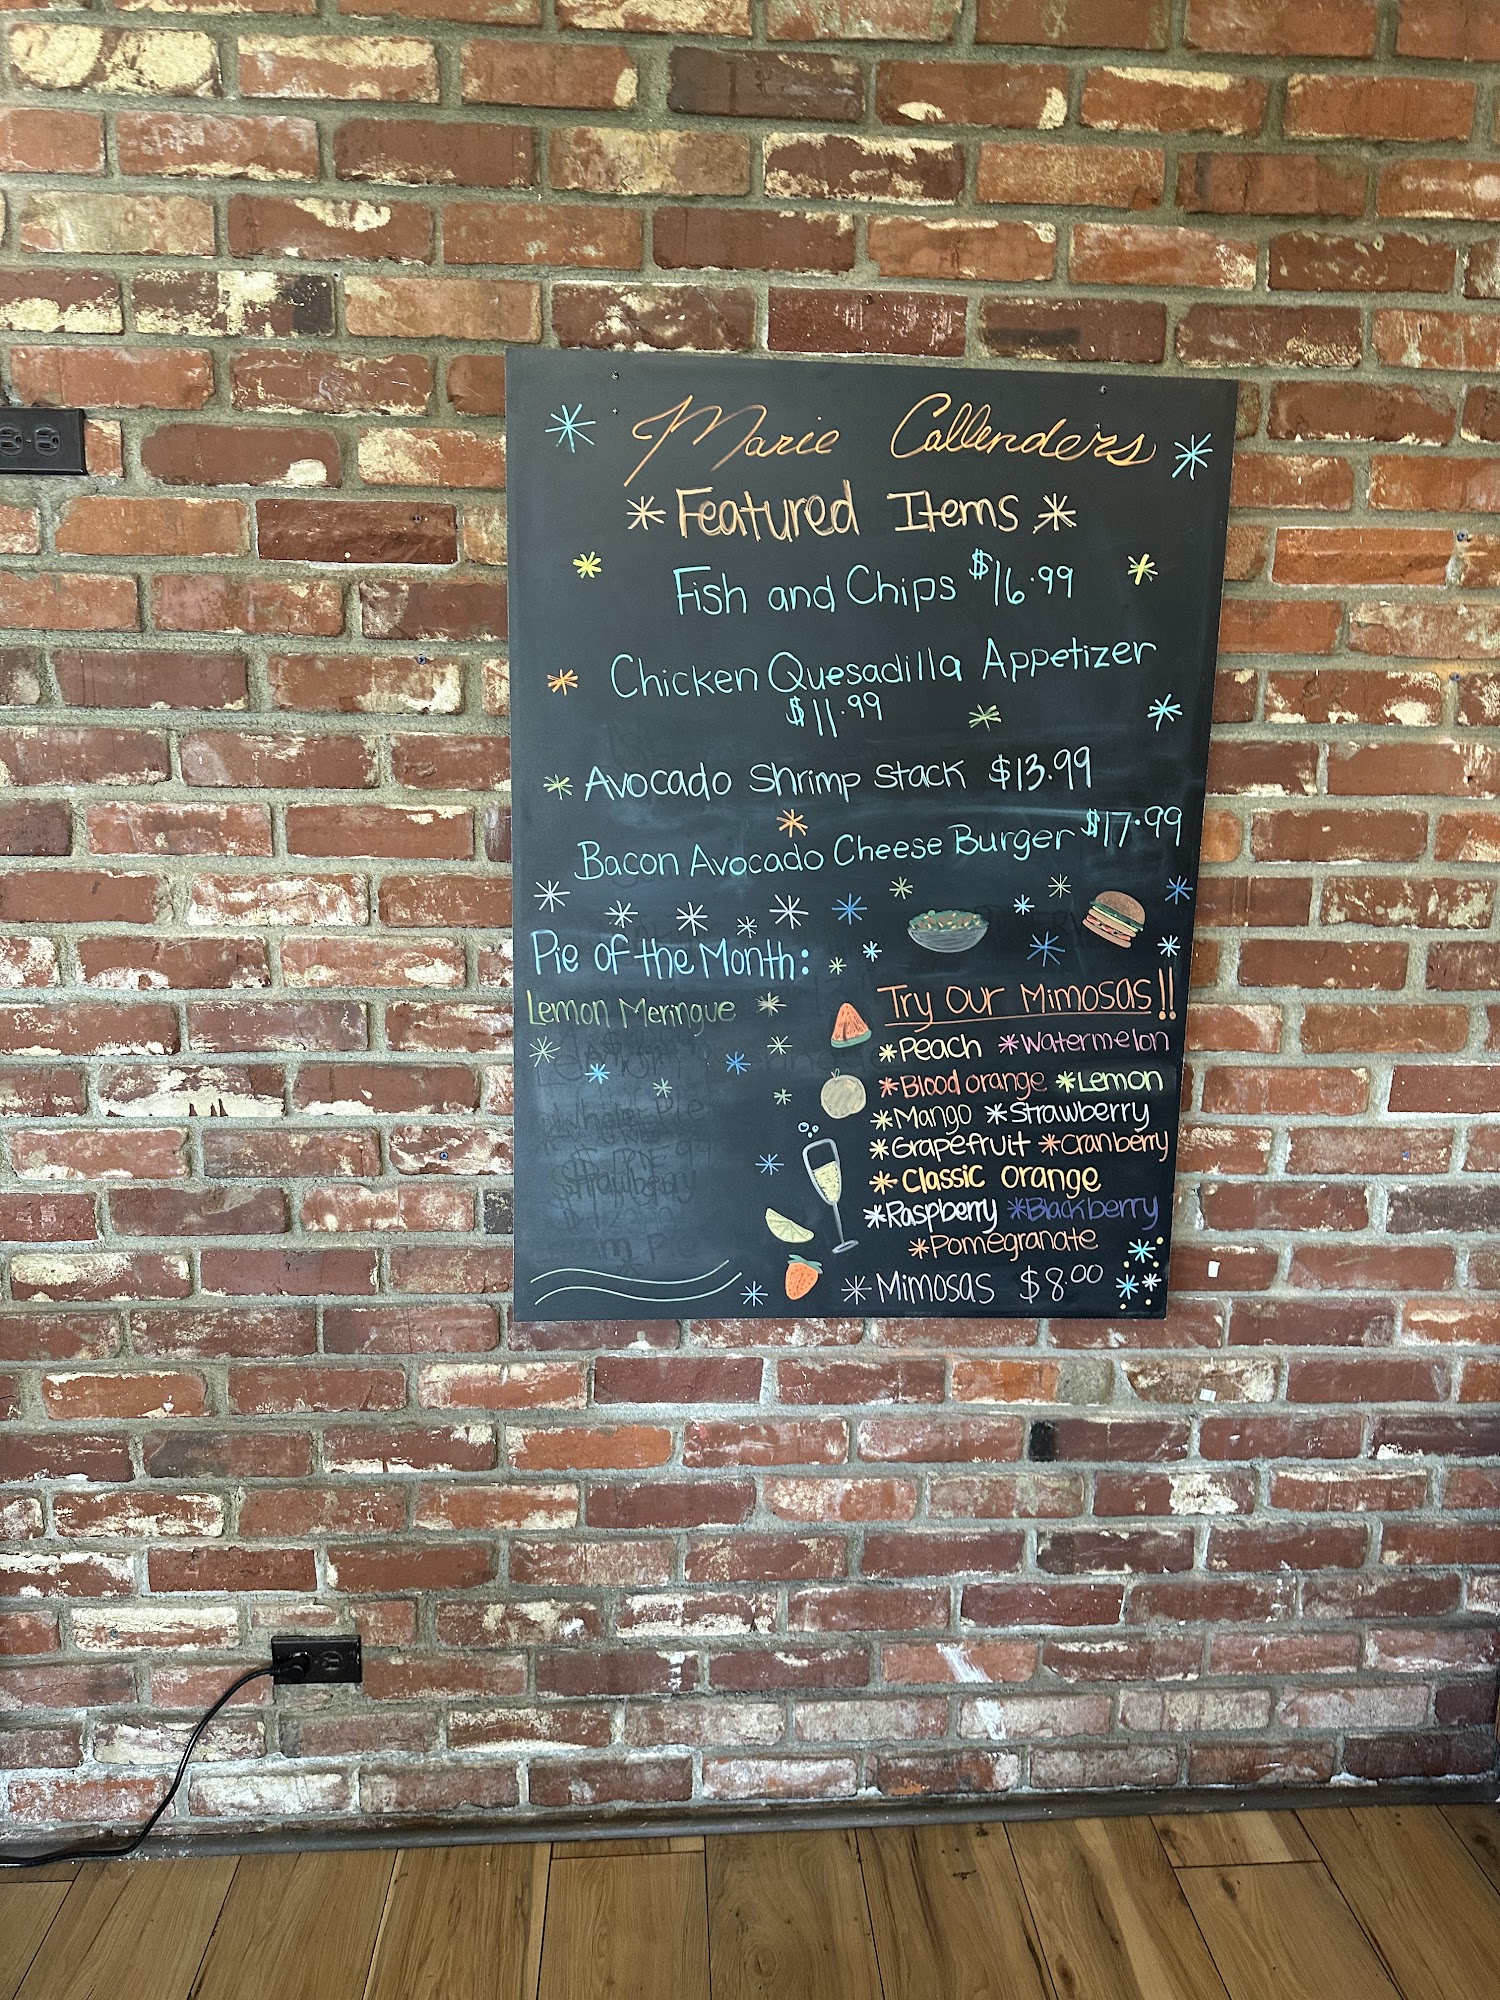 Marie Callenders
Featured Items
Fish and Chips $16.99
Chicken Quesadilla Appetizer
$11.99
Avocado Shrimp Stack $13.99
Bacon Avocado Cheese Burger $17.99
Pie of the Month:
Lemon Meringue
Try Our Mimosas!!
*Peach *Watermelon
*Blood orange *Lemon
*Mango *Strawberry
*Grapefruit *Cranberry
*Classic Orange
*Raspberry *Blackberry
*Pomegranate
*Mimosas $8.00